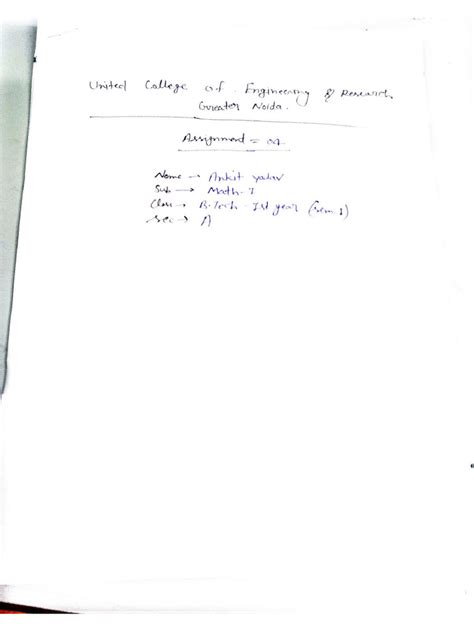 United College of Engineering & Research
Greater Noida.
Assignment = 04
Name → Ankit yadav
Sub → Math-I
Class → B.Tech - Ist year (sem 1)
Sec → A